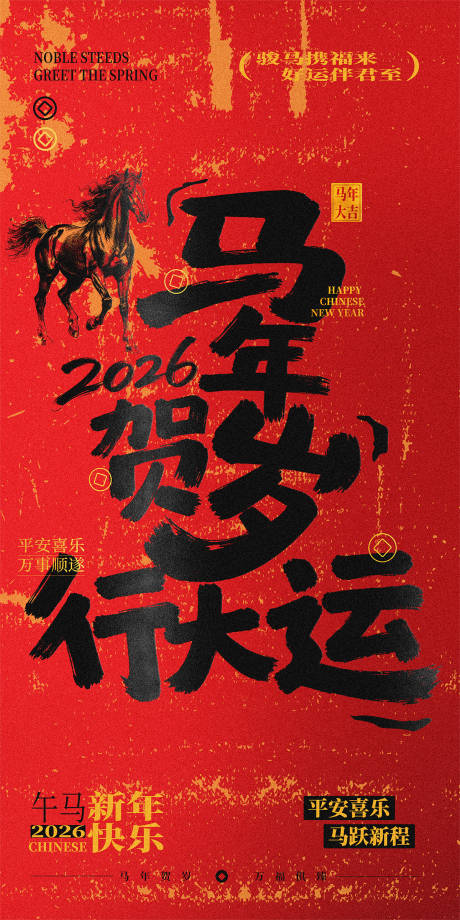 NOBLE STEEDS
GREET THE SPRING
骏马携福来
好运伴君至
马年
大吉
马年
HAPPY
CHINESE
NEW YEAR
2026
贺岁
平安喜乐
万事顺遂
行大运
午马
2026
CHINESE
新年
快乐
平安喜乐
马跃新程
马年贺岁
万福俱臻